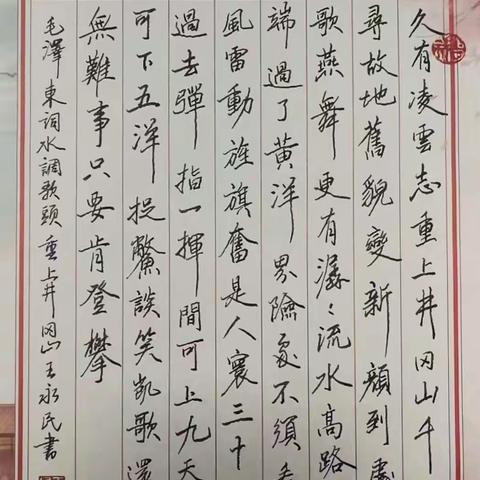 久有凌雲志重上井冈山千
尋故地舊貌變新顏到處
歌燕舞更有潺〻流水高路
端過了黃洋界險處不須
風雷動旌旗奮是人寰三十
過去彈指一揮間可上九天
可下五洋捉鱉談笑凱歌還
無難事只要肯登攀
毛澤東詞水調歌頭重上井冈山王永民書